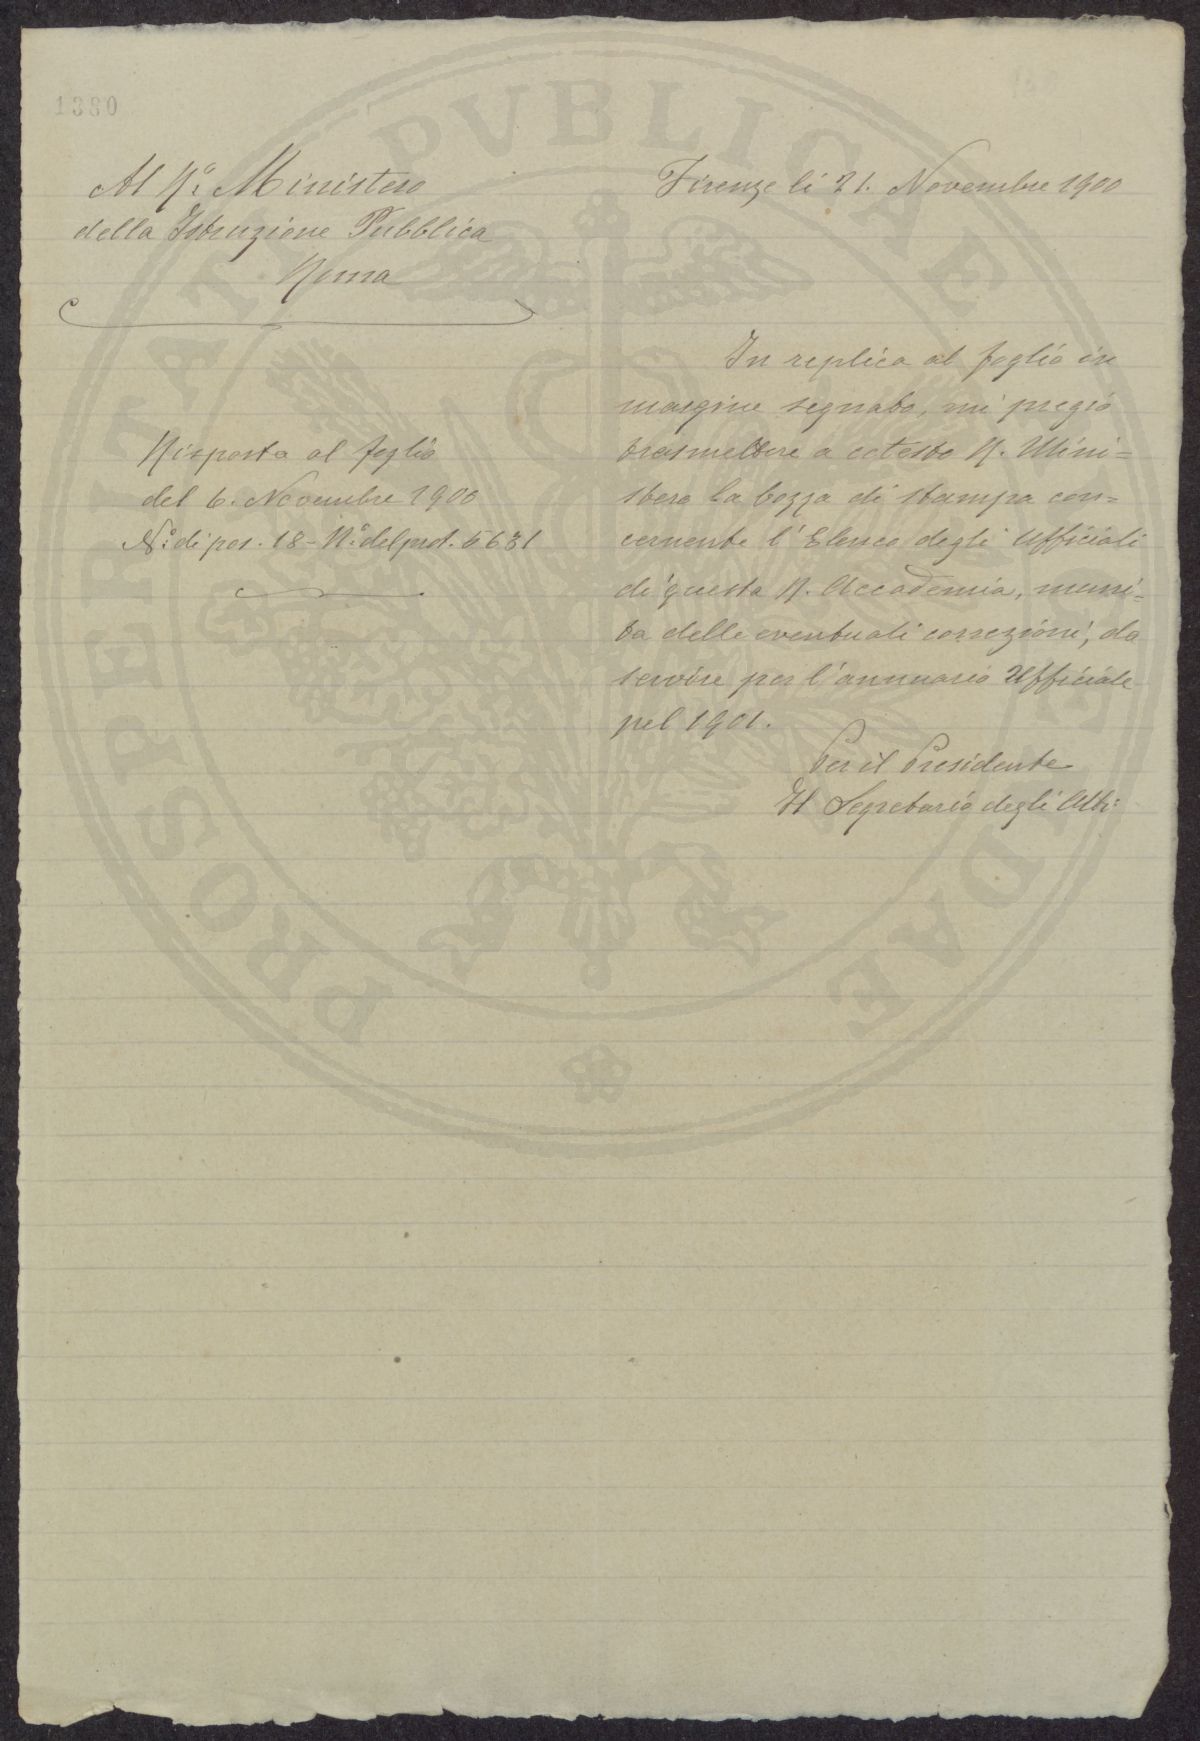 1380
Al R.º Ministero
della Istruzione Pubblica
Roma
Firenze li 21. Novembre 1900
Risposta al foglio
del 6. Novembre 1900
N.º di pos. 18 - N.º del prot.
In replica al foglio in
margine segnato, mi pregio
trasmettere a cotesto R. Mini=
stero la bozza di stampa con=
cernente l'Elenco degli Ufficiali
di questa R. Accademia, muni=
ta delle eventuali correzioni, da
servire per l'annuario Ufficiale
pel 1901.
Per il Presidente
Il Segretario degli Atti
PROSPERITATI PVBLICAE AVGENDAE